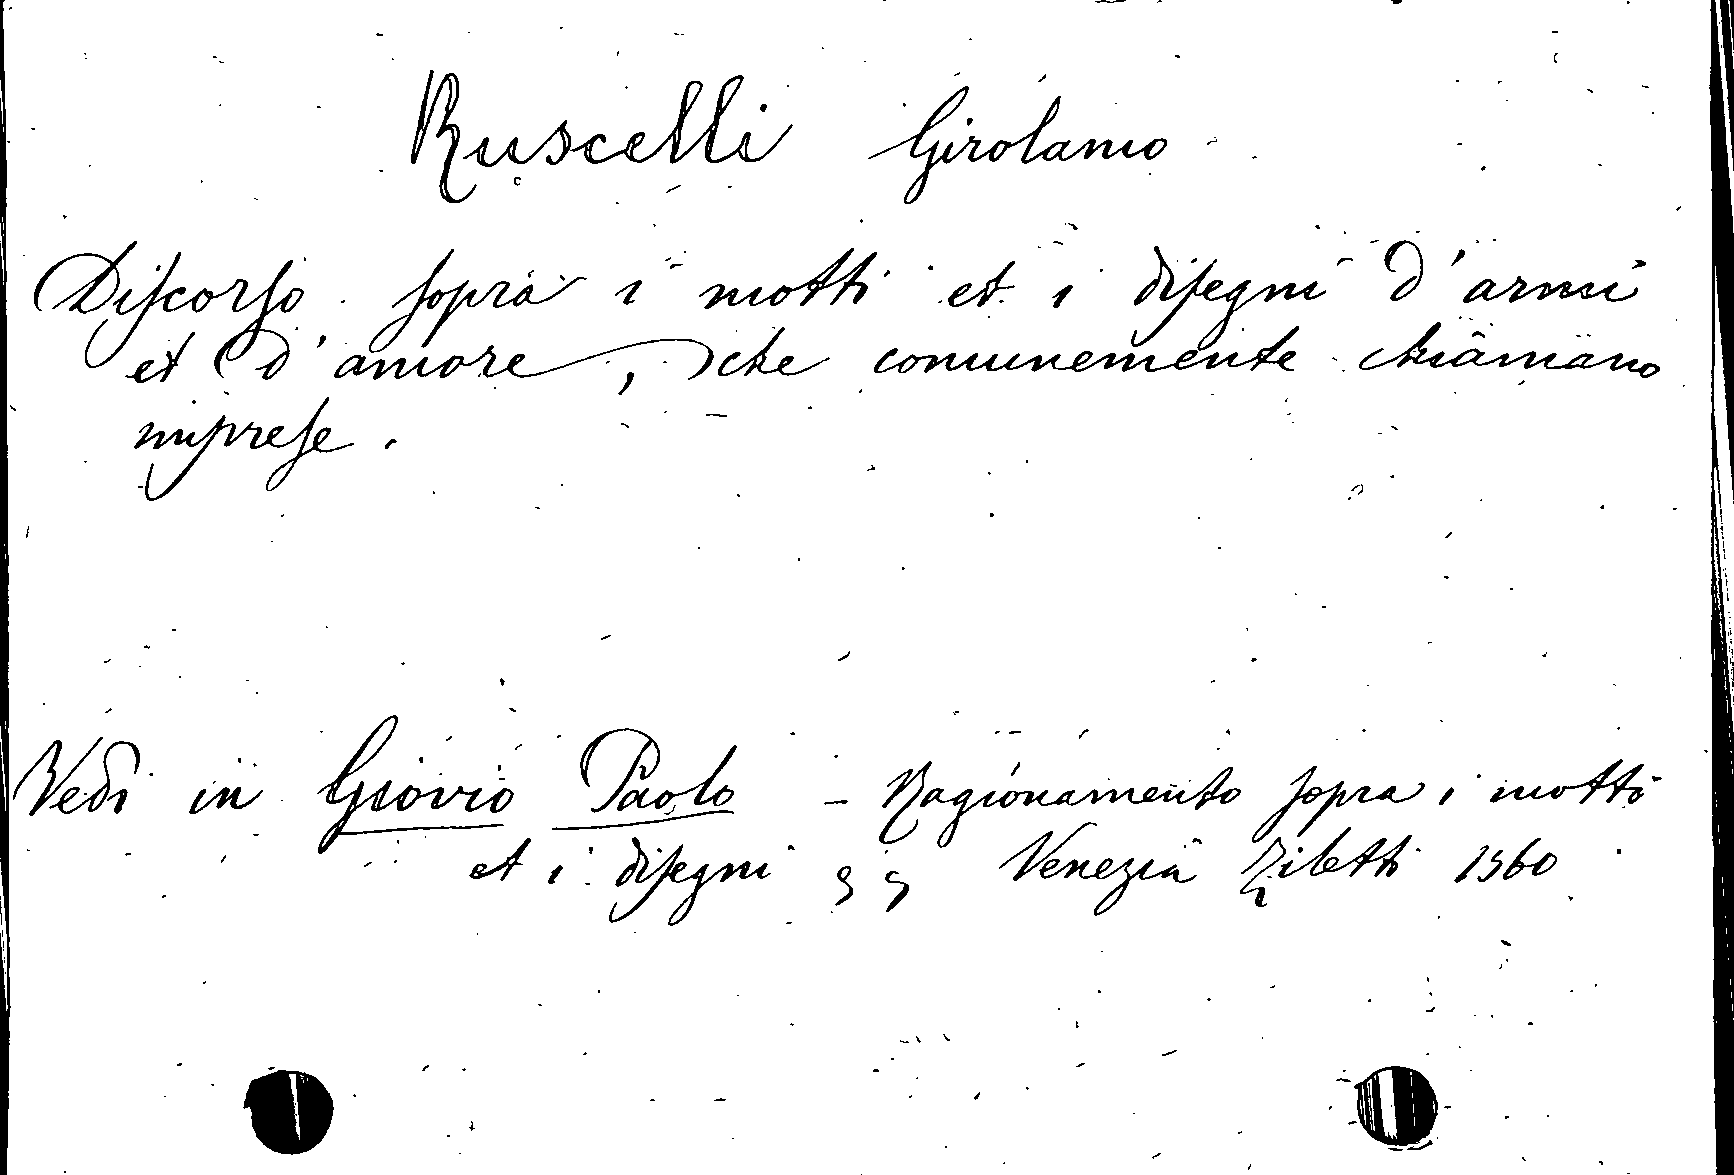 Ruscelli Girolamo
Discorso sopra i motti et i disegni d'armi
et d'amore, che comunemente chiamano
imprese.
Vedi in Giovio Paolo - Ragionamento sopra i motti
et i disegni Venezia Ziletti 1560